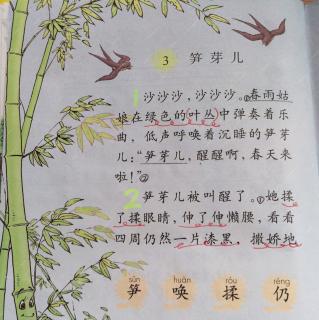 3 笋芽儿
1 沙沙沙,沙沙沙。①春雨姑
娘在绿色的(叶丛)中弹奏着乐
曲,低声呼唤着沉睡的笋芽
儿:“笋芽儿,醒醒啊,春天来
啦!”②
2 笋芽儿被叫醒了。①她揉
了揉眼睛,伸了伸懒腰,看看
四周仍然一片漆黑,撒娇地
sǔn huàn róu réng
笋 唤 揉 仍